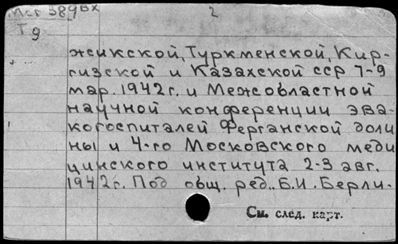 Мсг 389вх 2
Т 9
жикской, Туркменской, Кир-
гизской и Казахской сср 7-9
мар. 1942г. и Межобластной
научной конференции эва-
когоспиталей Ферганской доли
ны и 4-го Московского меди
цинского института 2-3 авг.
1942г. Под общ. ред. Б.И. Берли-
См. след. карт.